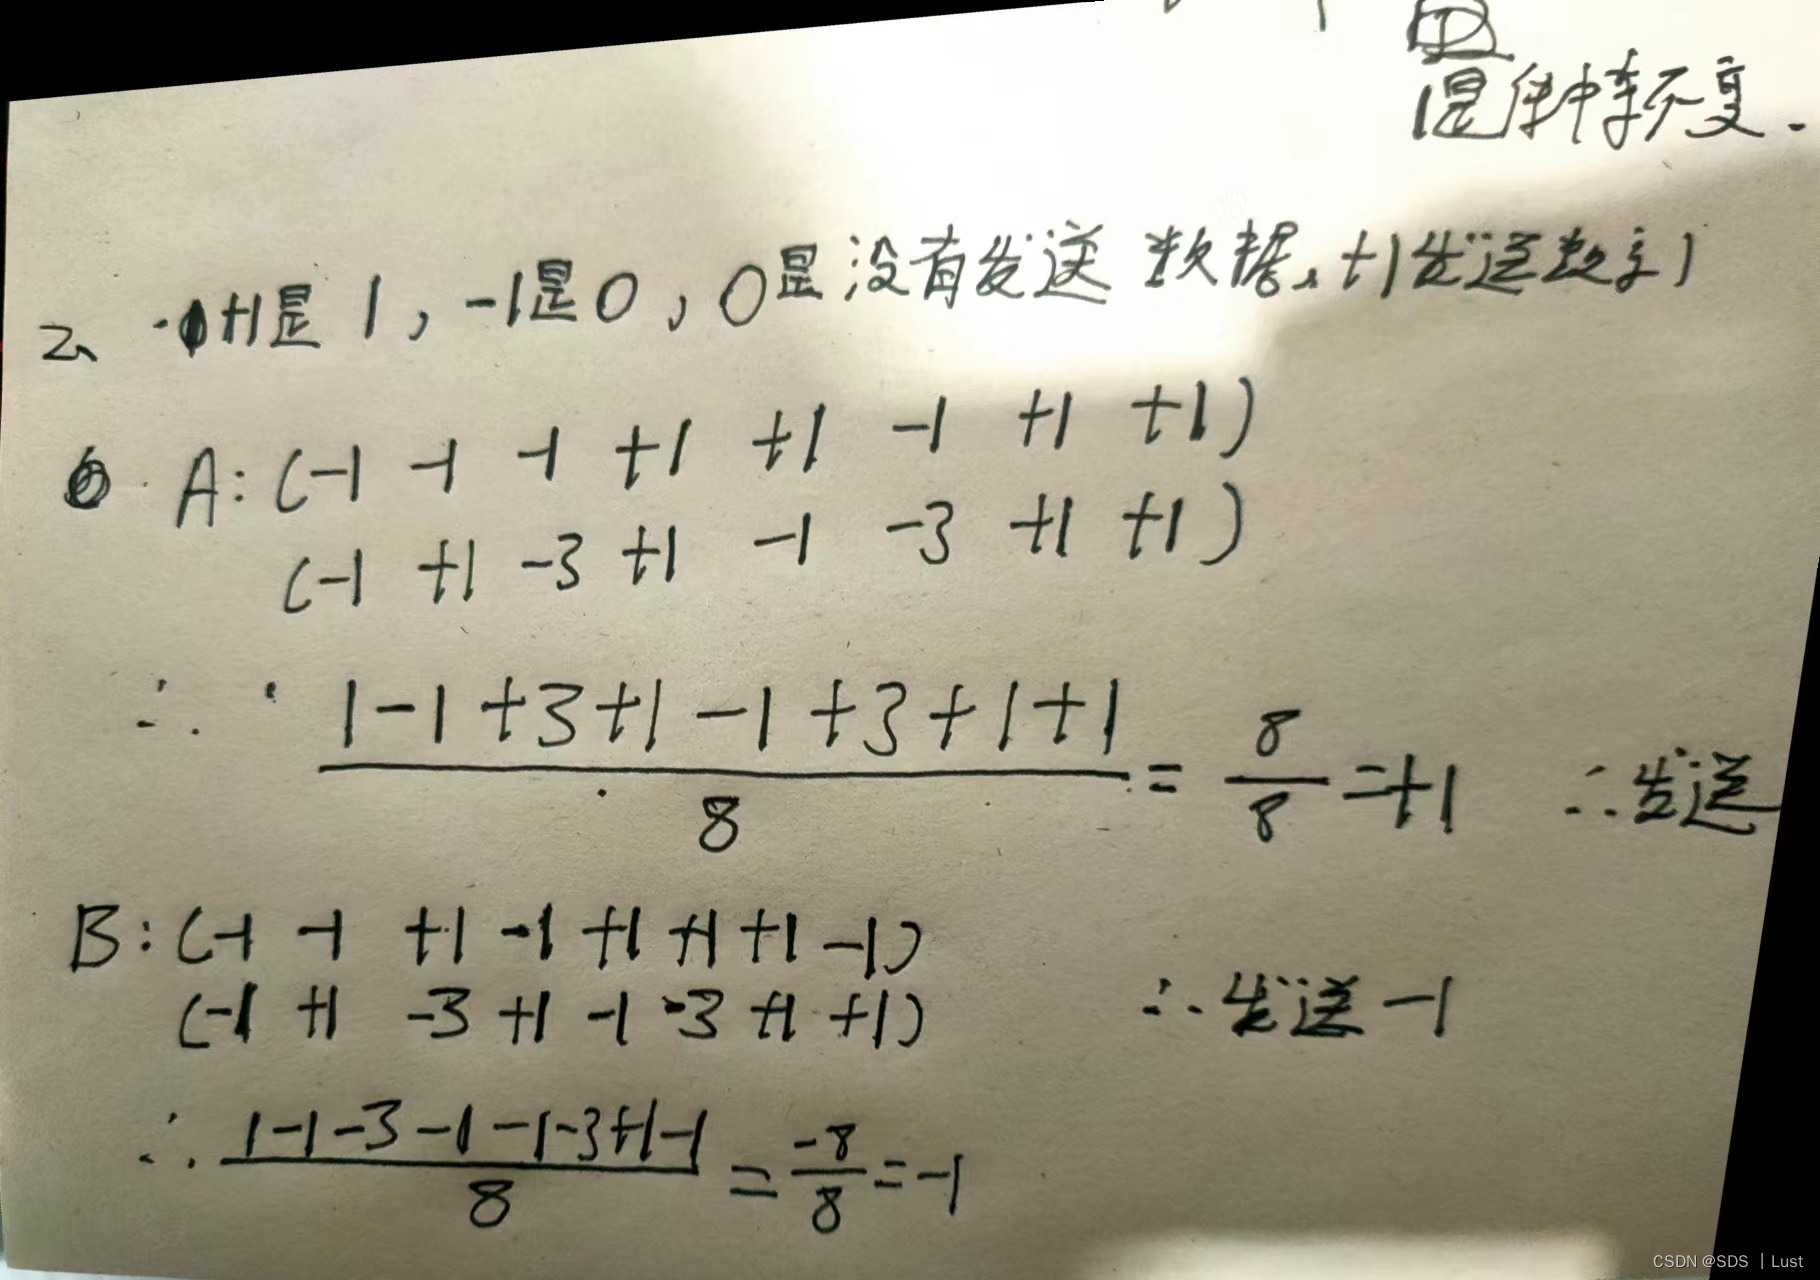 是传种率不变.
2、 +1是1,-1是0,0是没有发送数据、+1发送数字1
A:(-1 -1 -1 +1 +1 -1 +1 +1)
(-1 +1 -3 +1 -1 -3 +1 +1)
∴ 1-1+3+1-1+3+1+1 / 8 = 8/8 =+1 ∴发送
B:(-1 -1 +1 -1 +1 +1 +1 -1)
(-1 +1 -3 +1 -1 -3 +1 +1) ∴发送-1
∴ 1-1-3-1-1-3+1-1 / 8 = -8/8 =-1
CSDN @SDS丨Lust